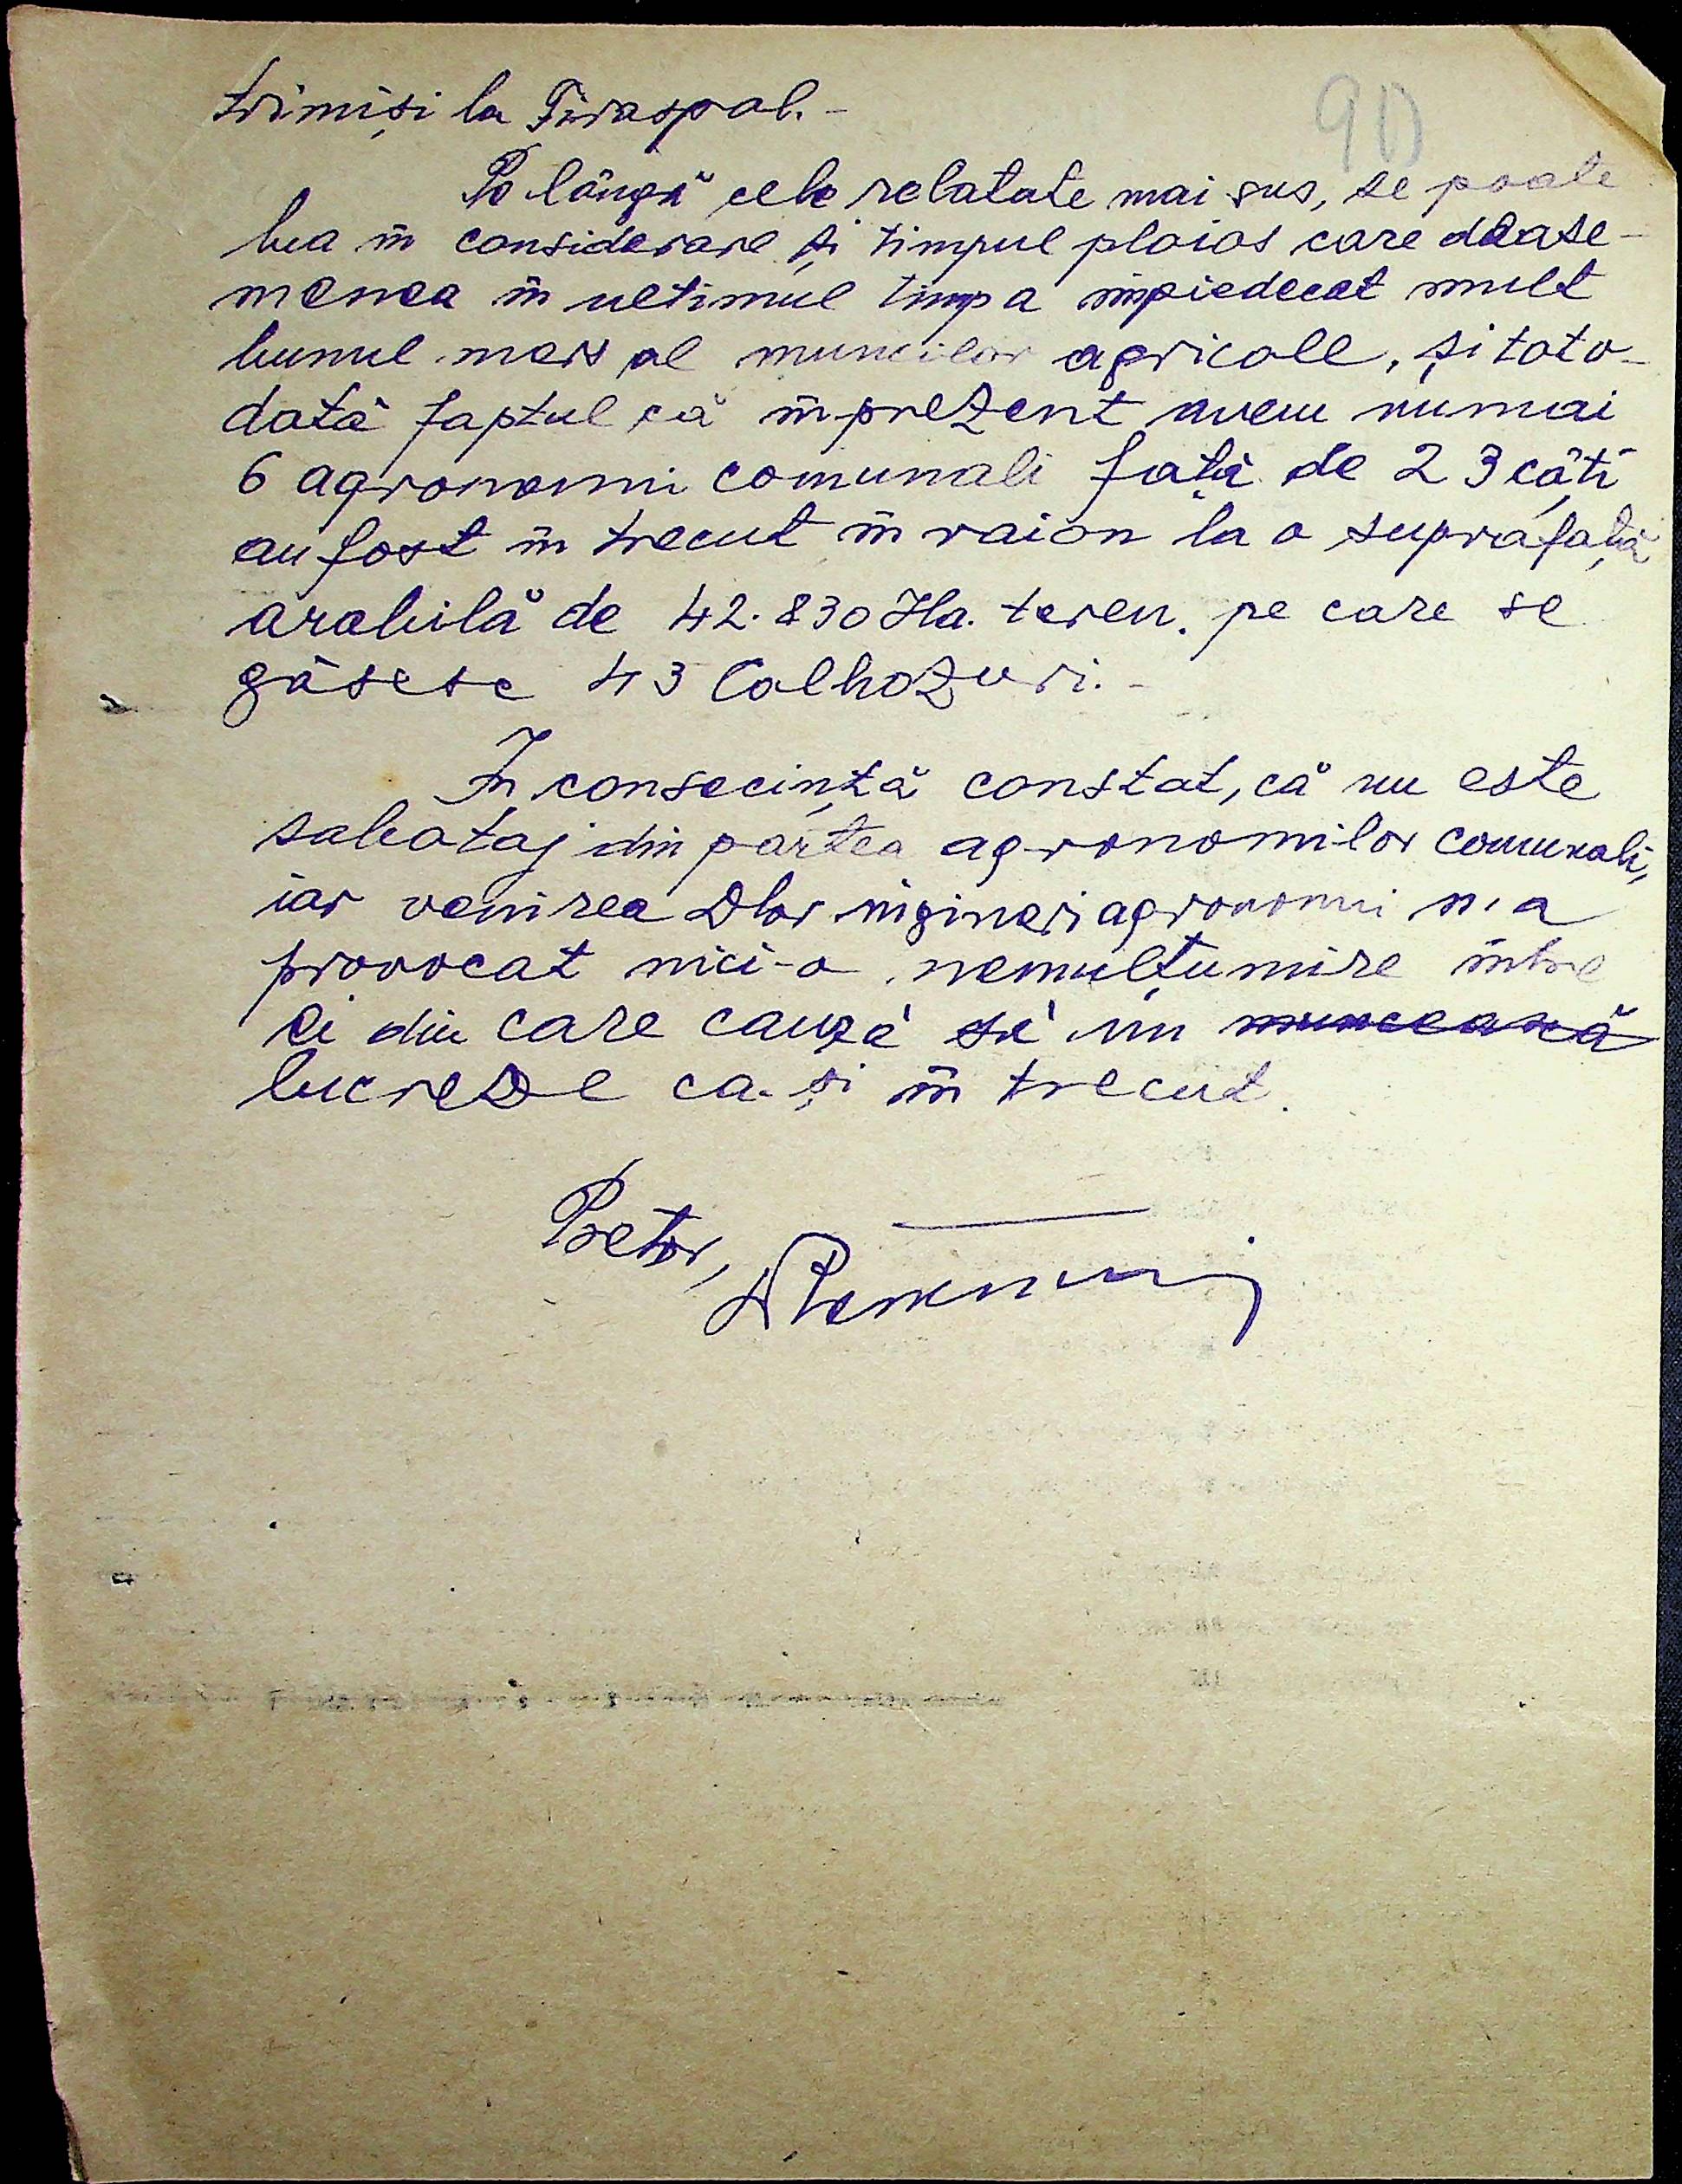 90
trimiși la Tiraspol.-
Pe lângă cele relatate mai sus, se poate
lua în considerare și timpul ploios care dease-
menea în ultimul timp a împiedecat mult
bunul mers al muncilor agricole, și toto-
dată faptul că în prezent avem numai
6 agronomi comunali față de 23 câți
au fost în trecut în raion la o suprafață
arabilă de 42.830 Ha. teren. pe care se
găsesc 43 Colhozuri.-
In consecință constat, că nu este
sabotaj din partea agronomilor comunali,
iar venirea Dlor ingineri agronomi n'a
provocat nici-o nemulțumire între
ei din care cauză să nu muncească
lucreze ca și în trecut.
Pretor,